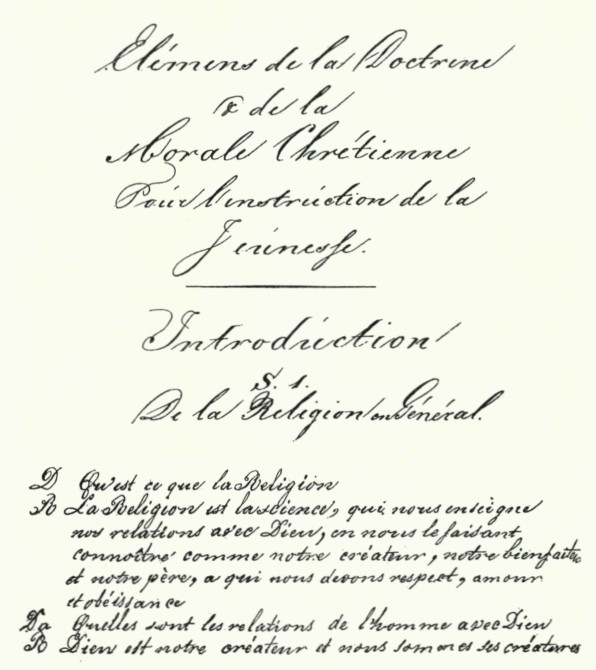 Elémens de la Doctrine
& de la
Morale Chrétienne
Pour l'instruction de la
Jeunesse.
Introduction
S. 1.
De la Religion en Général.
D Qu'est ce que la Religion
R La Religion est la science, qui nous enseigne
nos relations avec Dieu, en nous le faisant
connoître comme notre créateur, notre bienfaiteur
et notre père, a qui nous devons respect, amour
et obéissance
Da Quelles sont les relations de l'homme avec Dieu
R Dieu est notre créateur et nous sommes ses créatures